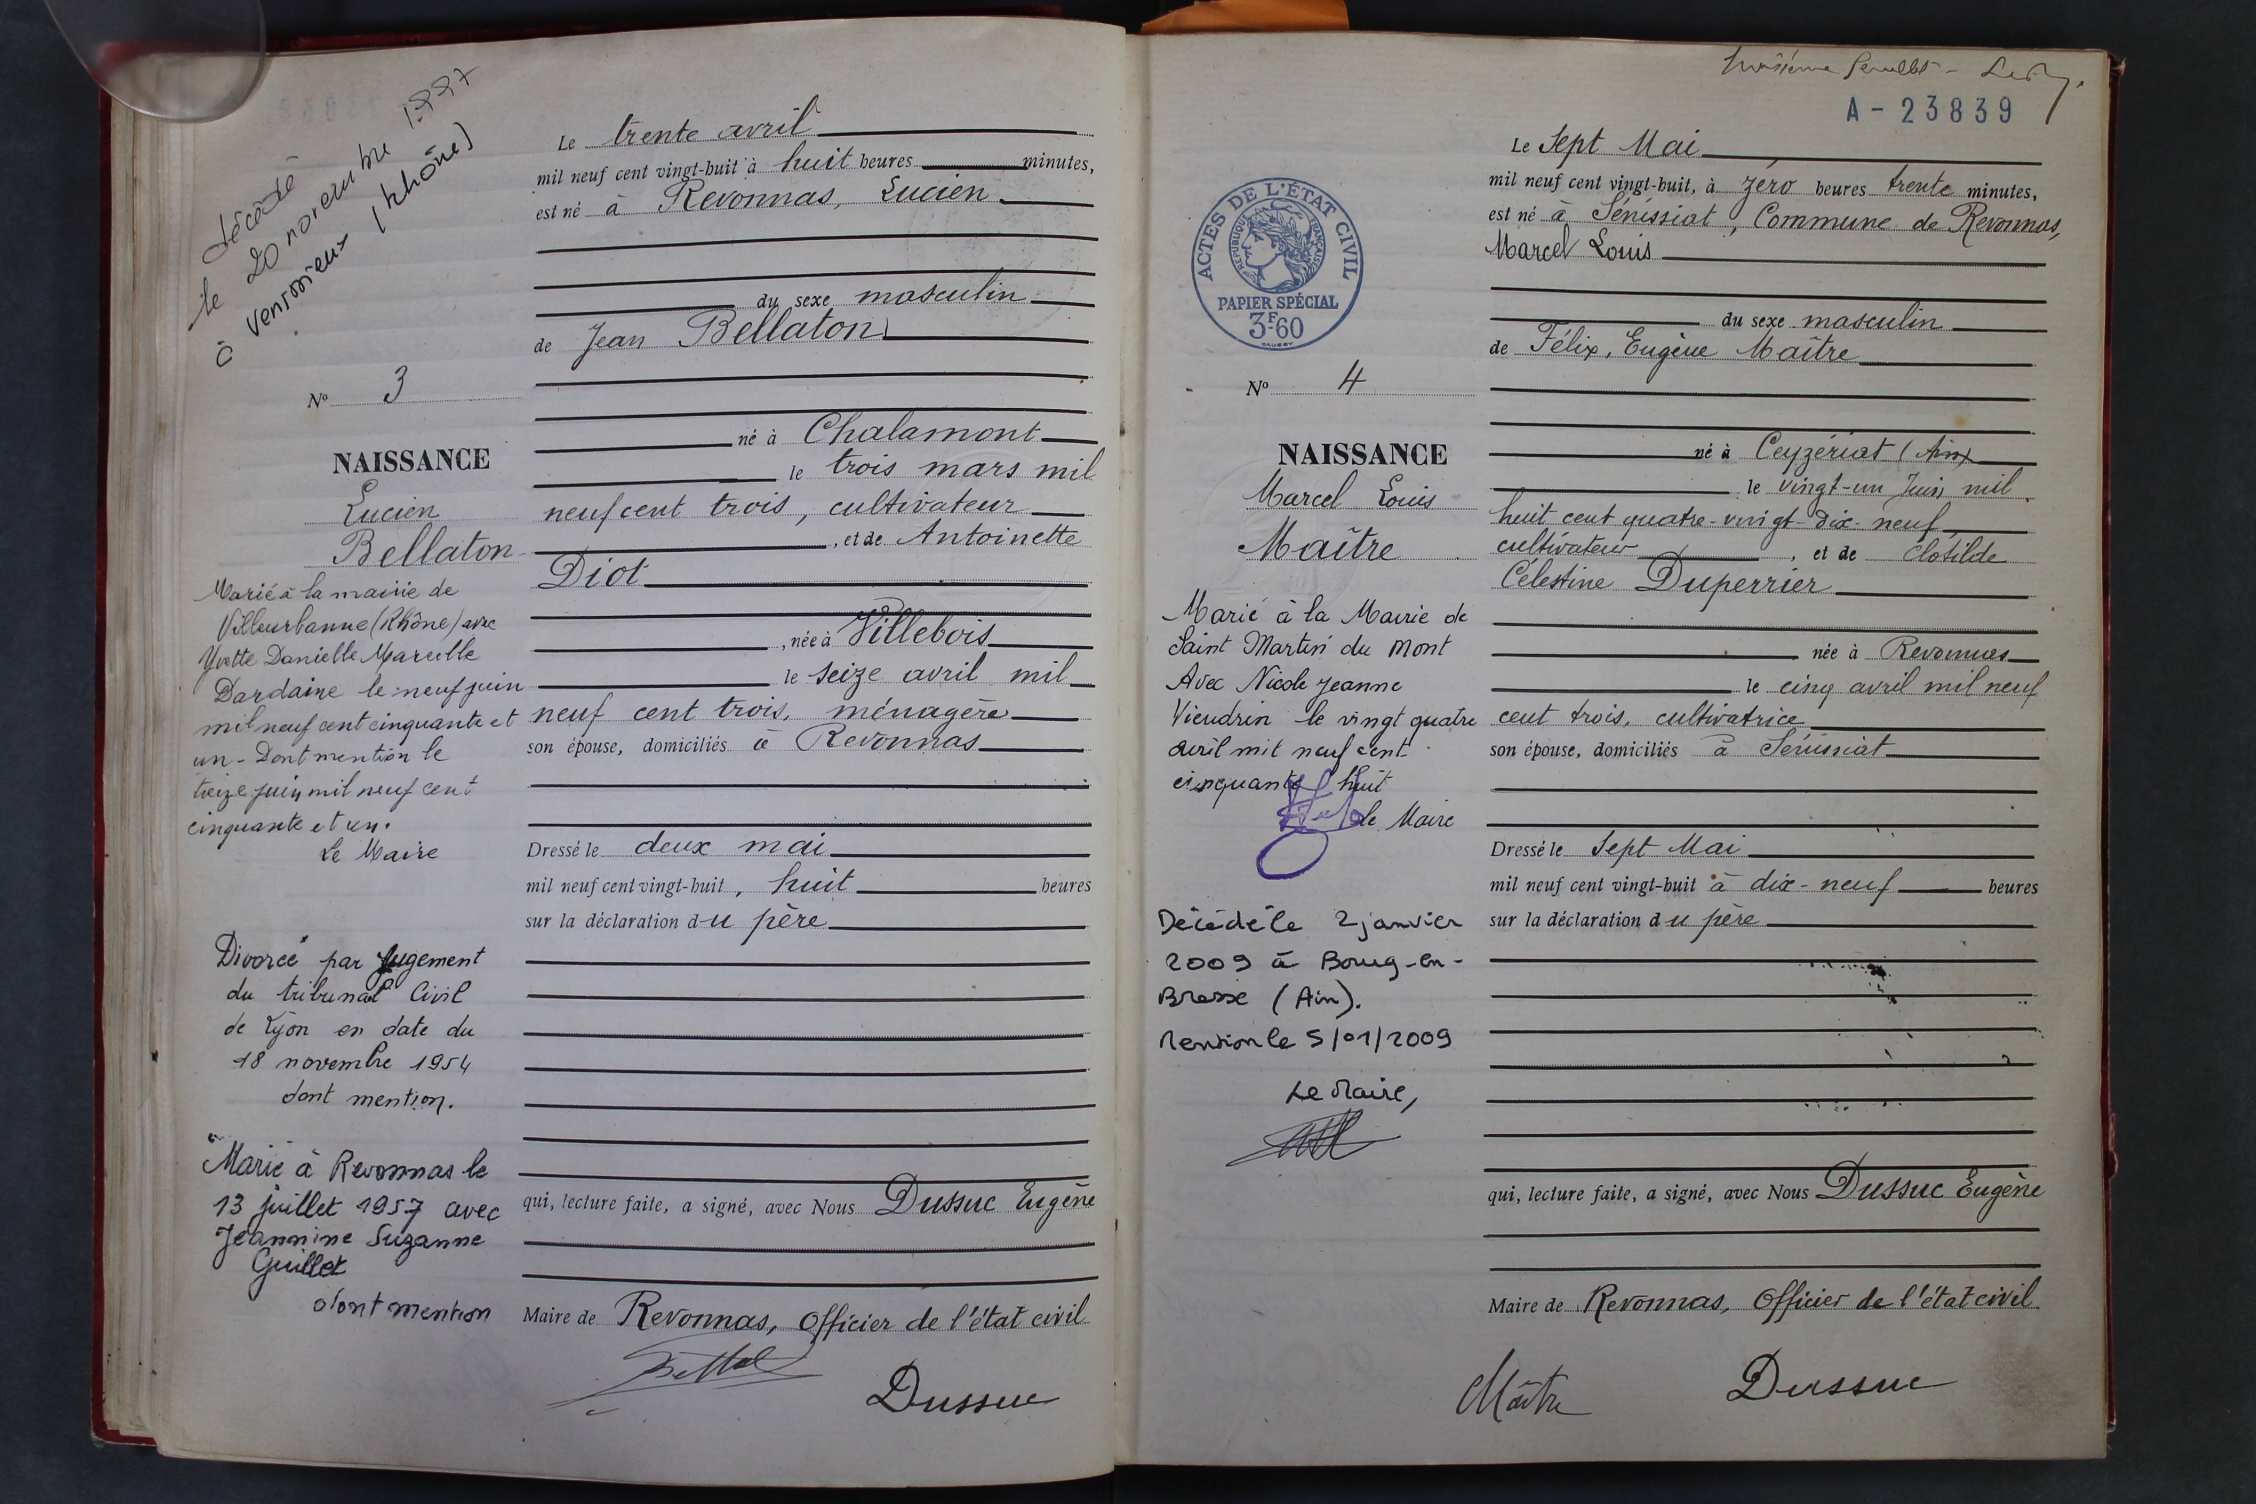 décédé
le 20 novembre 1997
à Venissieux (Rhône)
Le trente avril
mil neuf cent vingt-huit à huit heures minutes,
est né à Revonnas, Lucien
du sexe masculin
de Jean Bellaton
né à Chalamont
le trois mars mil
neuf cent trois, cultivateur
, et de Antoinette
Diot
, née à Villebois
le seize avril mil
neuf cent trois, ménagère
son épouse, domiciliés à Revonnas
Dressé le deux mai
mil neuf cent vingt-huit, huit heures
sur la déclaration du père
qui, lecture faite, a signé, avec Nous Dussuc Eugène
Maire de Revonnas, Officier de l'état civil
Dussuc
No 3
NAISSANCE
Lucien
Bellaton
Marié à la mairie de
Villeurbanne (Rhône) avec
Yvette Danielle Marcelle
Dardaine le neuf juin
mil neuf cent cinquante et
un - Dont mention le
treize juin mil neuf cent
cinquante et un.
Le Maire
Divorcé par jugement
du tribunal Civil
de Lyon en date du
18 novembre 1954
dont mention.
Marié à Revonnas le
13 juillet 1957 avec
Jeannine Suzanne
Guillet
dont mention
troisième feuillet
A - 23839
ACTES DE L'ÉTAT CIVIL
RÉPUBLIQUE FRANÇAISE
PAPIER SPÉCIAL
3F60
Le Sept Mai
mil neuf cent vingt-huit, à zéro heures trente minutes,
est né à Sénissiat, Commune de Revonnas,
Marcel Louis
du sexe masculin
de Félix, Eugène Maître
né à Ceyzériat (Ain)
le vingt-un Juin mil
huit cent quatre-vingt-dix-neuf
cultivateur, et de Clotilde
Célestine Duperrier
née à Revonnas
le cinq avril mil neuf
cent trois, cultivatrice
son épouse, domiciliés à Sénissiat
Dressé le Sept Mai
mil neuf cent vingt-huit à dix-neuf heures
sur la déclaration du père
qui, lecture faite, a signé, avec Nous Dussuc Eugène
Maire de Revonnas, Officier de l'état civil
Maître Dussuc
No 4
NAISSANCE
Marcel Louis
Maître
Marié à la Mairie de
Saint Martin du Mont
Avec Nicole Jeanne
Vieudrin le vingt quatre
avril mil neuf cent
cinquante huit
le Maire
Décédé le 2 janvier
2009 à Bourg-en-
Bresse (Ain).
Mention le 5/01/2009
Le Maire,